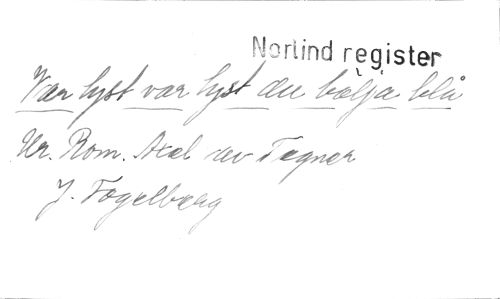 Norlind register
Var hyst var hyst du bölja blå
Ur. Rom. Axel av Tegner
J. Fogelberg